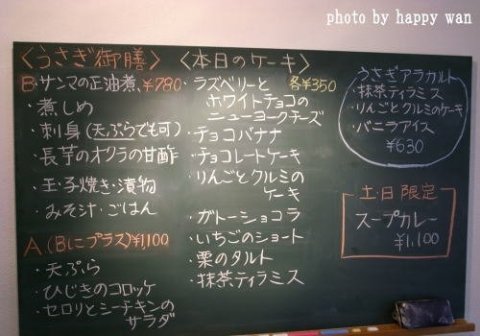 photo by happy wan
〈うさぎ御膳〉
B・サンマの正油煮 ¥780
・煮しめ
・刺身(天ぷらでも可)
・長芋のオクラの甘酢
・玉子焼き・漬物
・みそ汁・ごはん
A(Bにプラス)¥1,100
・天ぷら
・ひじきのコロッケ
・セロリとシーチキンの
サラダ
〈本日のケーキ〉
各¥350
・ラズベリーと
ホワイトチョコの
ニューヨークチーズ
・チョコバナナ
・チョコレートケーキ
・りんごとクルミの
ケーキ
・ガトーショコラ
・いちごのショート
・栗のタルト
・抹茶ティラミス
うさぎアラカルト
・抹茶ティラミス
・りんごとクルミのケーキ
・バニラアイス
¥630
土日限定
スープカレー
¥1,100